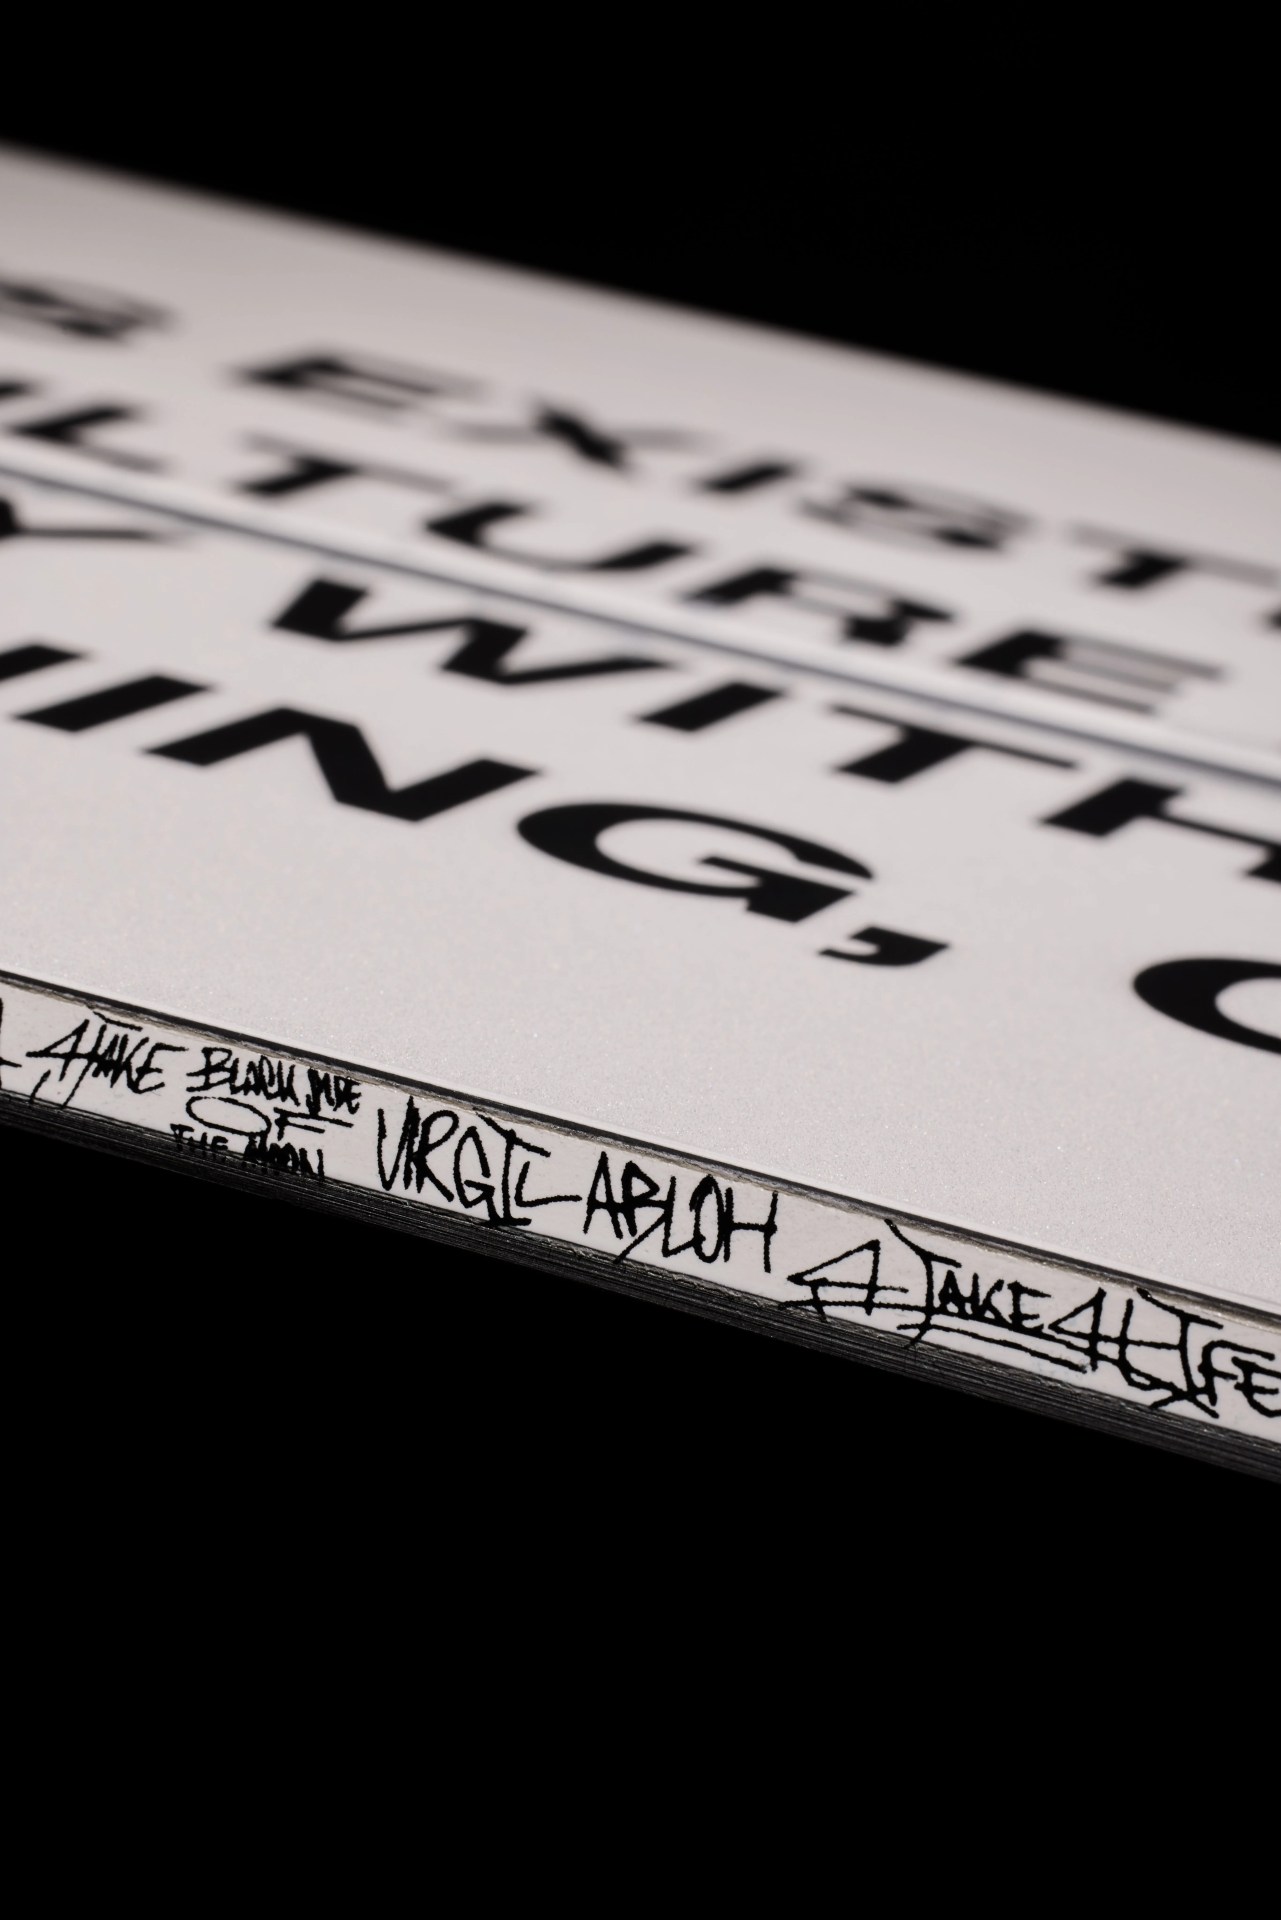 S EXIST
LTURE
Y WITH
IING, C
4TAKE BLACK SIDE
OF
THE MOON
VIRGIL ABLOH
4TAKE4LIFE